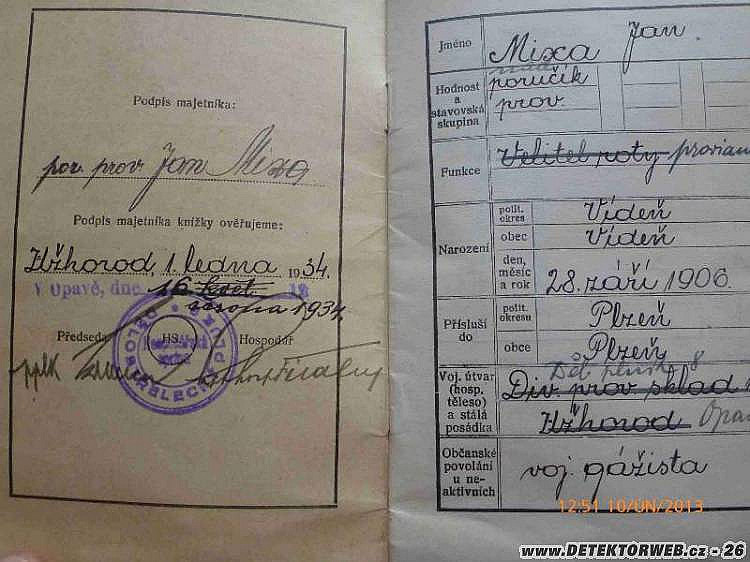 Podpis majetníka:
por. prov. Jan Mixa
Podpis majetníka knížky ověřujeme:
Užhorod, 1. ledna 1934.
V Opavě, dne 16. květ. 19
srpna 1934
Předseda HS. Hospodář
pplk
Jméno Mixa Jan.
Hodnost a stavovská skupina
poručík
prov.
Funkce Velitel roty
Narození
polit. okres Vídeň
obec Vídeň
den, měsíc a rok 28. září 1906.
Přísluší do
polit. okresu Plzeň
obce Plzeň
Děl. pluk 8
Voj. útvar (hosp. těleso) a stálá posádka
Div. prov. sklad
Užhorod
Občanské povolání u neaktivních
voj. gážista
12:51 10/ÚN/2013
www.DETEKTORWEB.cz - 26